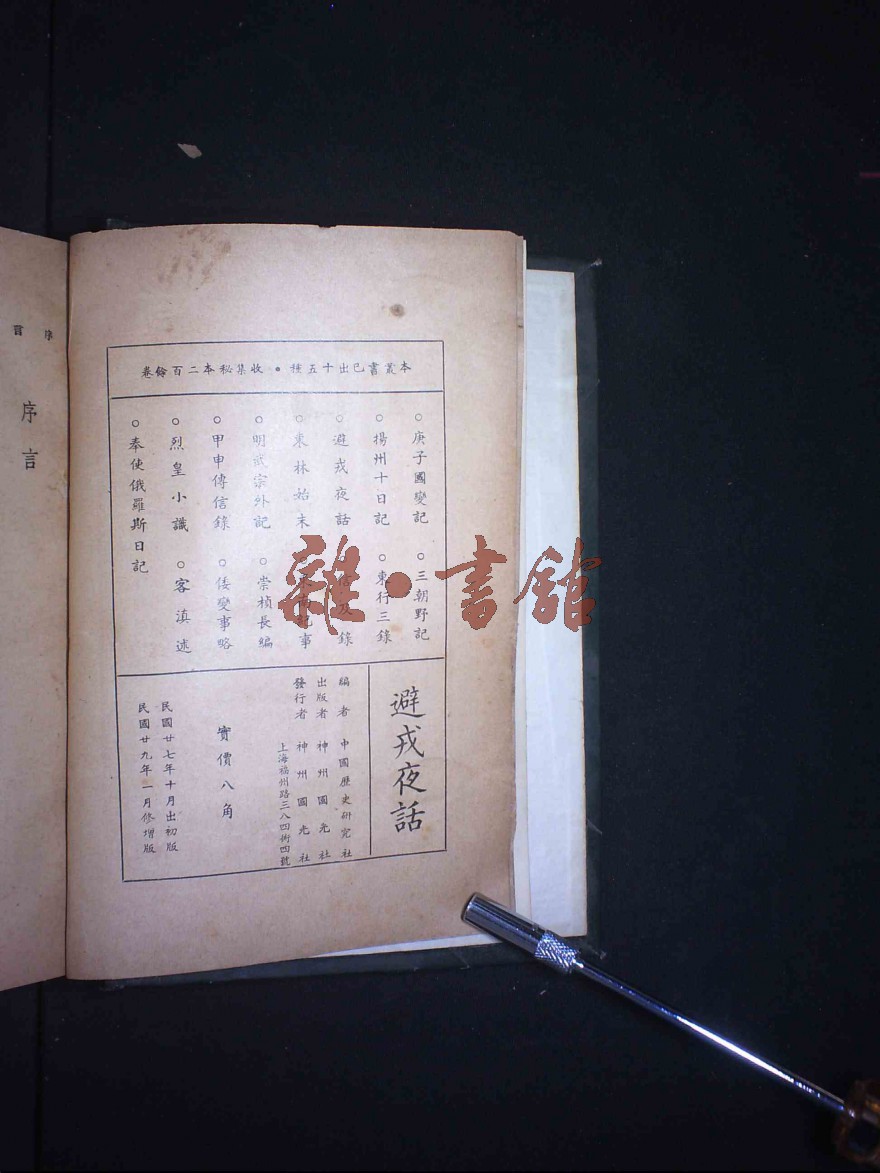 本叢書已出十五種•收集秘本二百餘卷
○庚子國變記 ○三朝野記
○揚州十日記 ○東行三錄
○避戎夜話 及錄
○東林始末 南記事
○明武宗外記 ○崇禎長編
○甲申傳信錄 ○倭變事略
○烈皇小識 ○客滇述
○奉使俄羅斯日記
避戎夜話
編者 中國歷史研究社
出版者 神州國光社
發行者 神州國光社
上海福州路三八四衖四號
實價八角
民國廿七年十月出初版
民國廿九年一月修增版
序言
序言
雜•書館